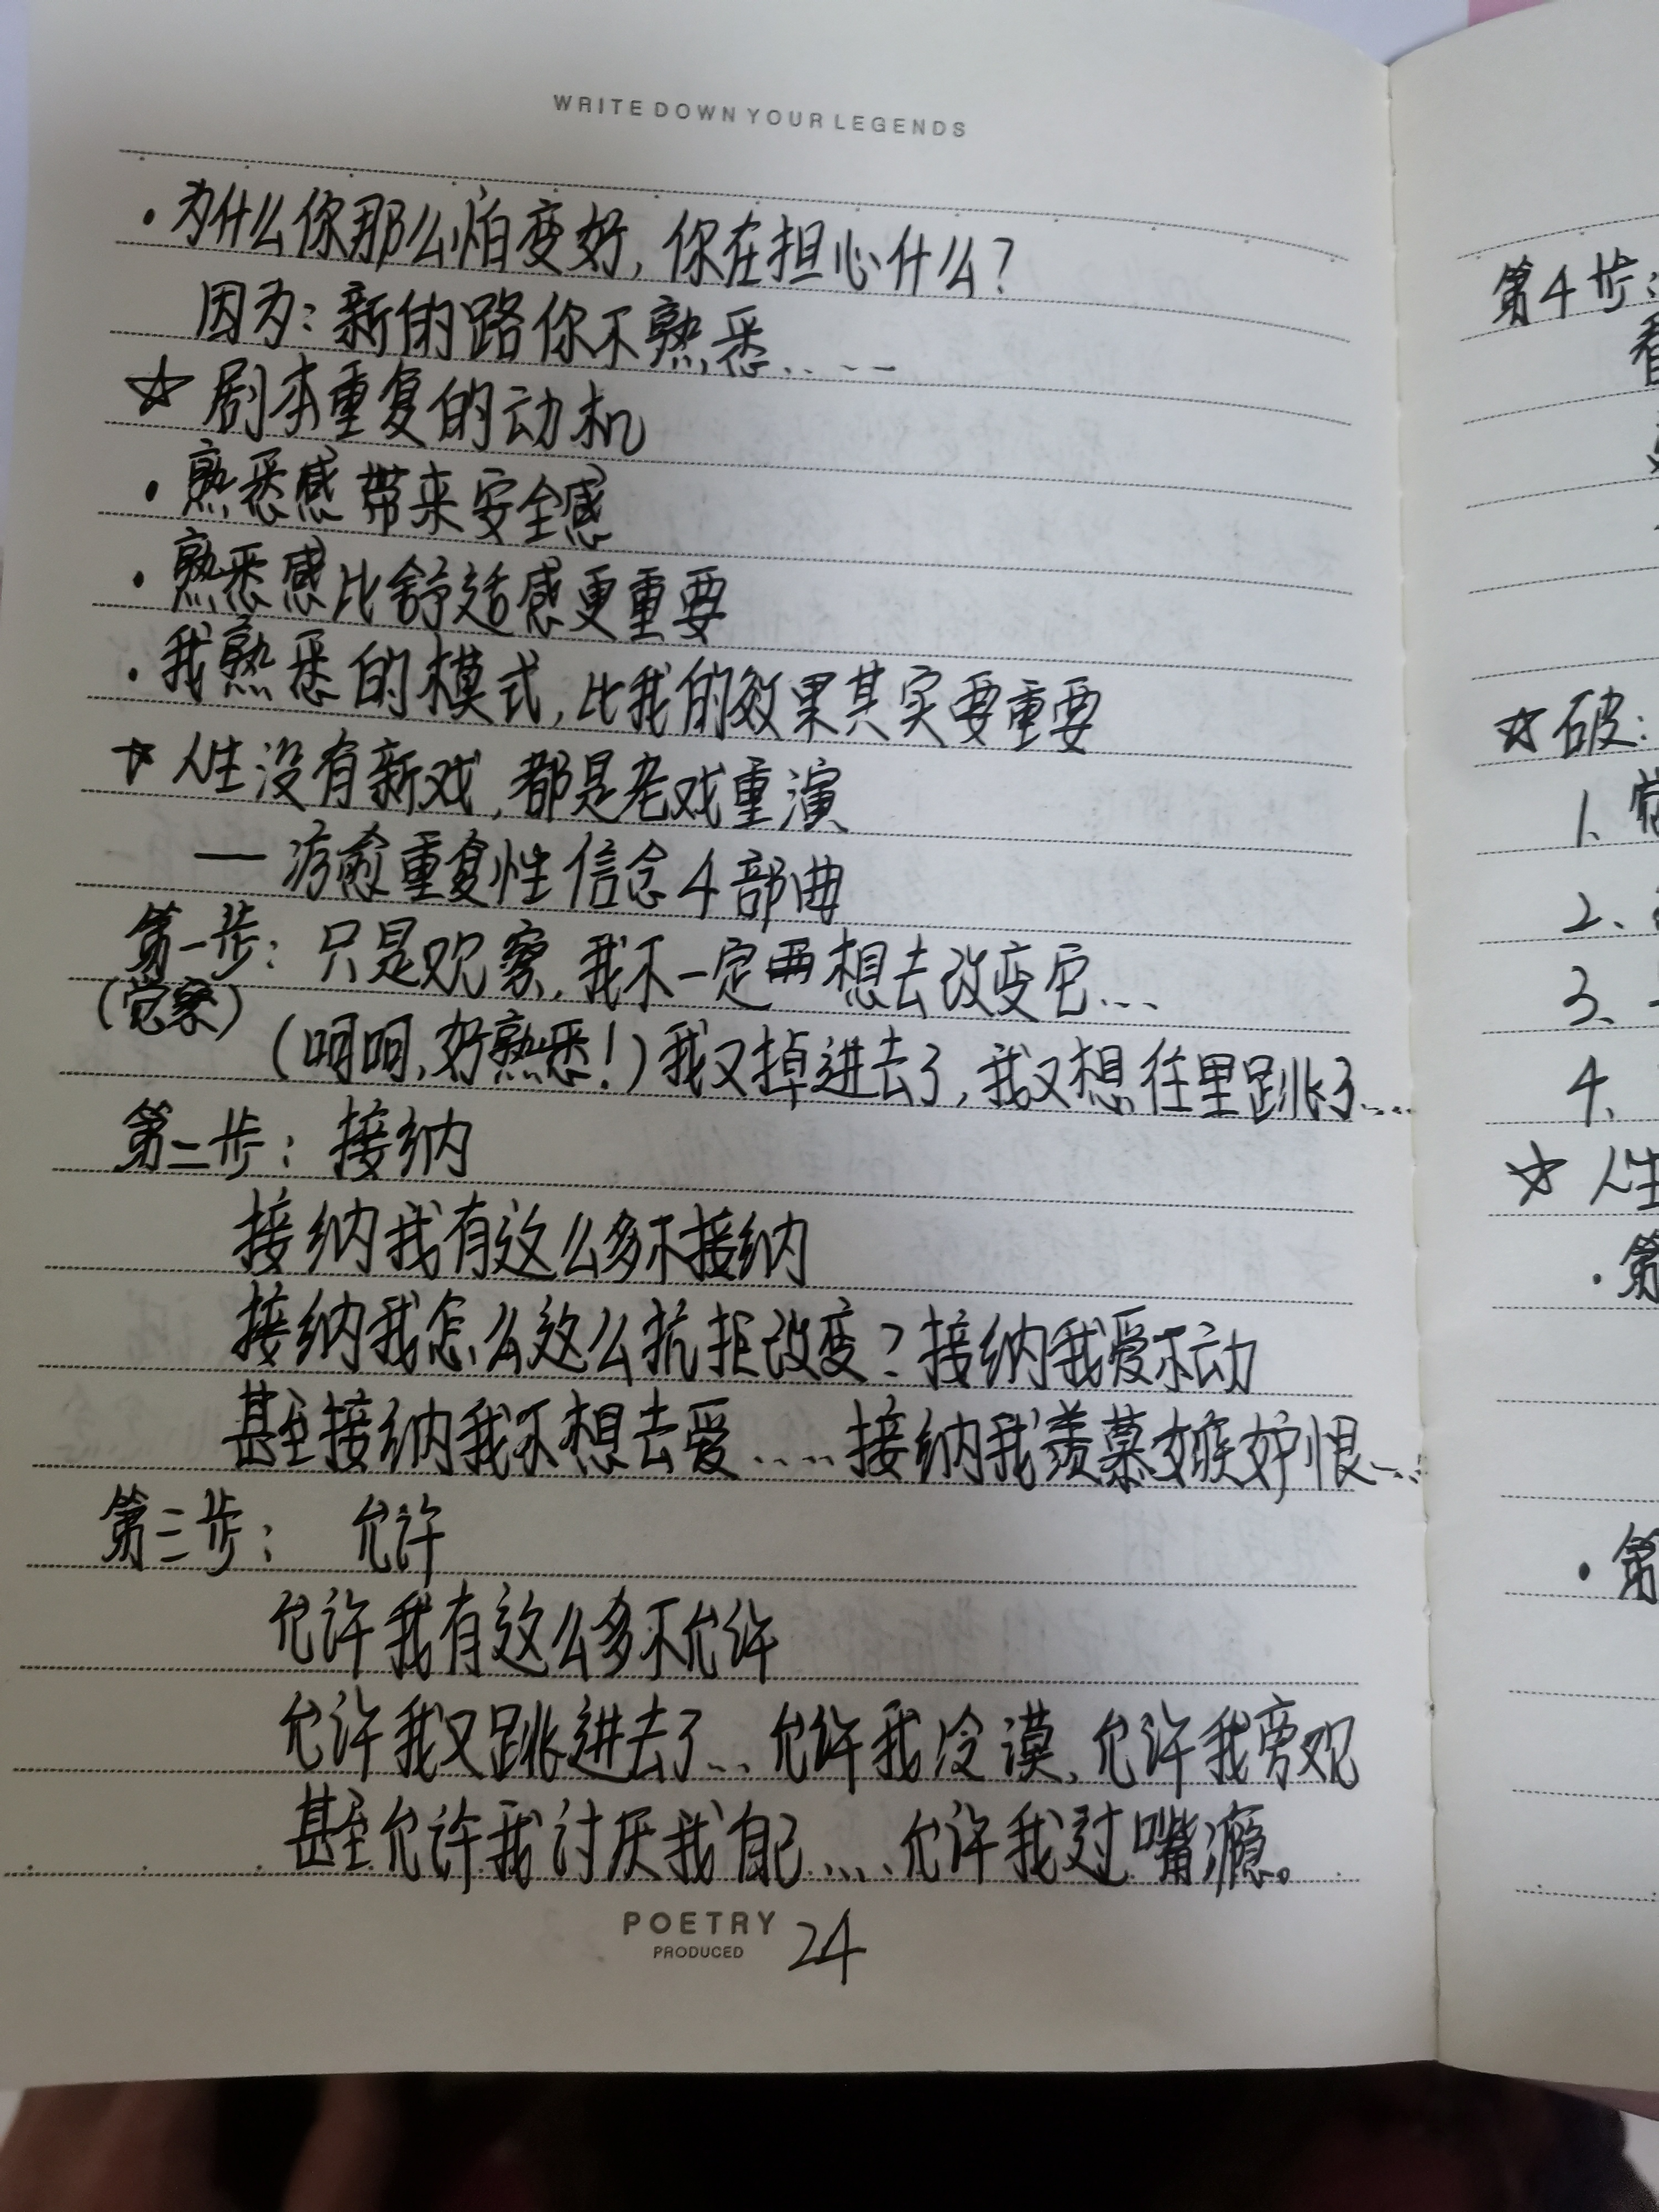 WRITE DOWN YOUR LEGENDS
·为什么你那么怕变好,你在担心什么?
因为:新的路你不熟悉.....
☆ 剧本重复的动机
·熟悉感带来安全感
·熟悉感比舒适感更重要
·我熟悉的模式,比我的效果其实要重要
☆ 人生没有新戏,都是老戏重演
— 疗愈重复性信念4部曲
第一步:只是观察,我不一定想去改变它...
(觉察)
(呵呵,好熟悉!)我又掉进去了,我又想往里跳了...
第二步:接纳
接纳我有这么多不接纳
接纳我怎么这么抗拒改变?接纳我爱不动
甚至接纳我不想去爱.....接纳我羡慕嫉妒恨...
第三步: 允许
允许我有这么多不允许
允许我又跳进去了...允许我冷漠、允许我旁观
甚至允许我讨厌我自己....允许我过嘴瘾。
POETRY
PRODUCED
24
第4步:
☆ 破:
1、
2、
3、
4、
☆ 人生
·第
·第